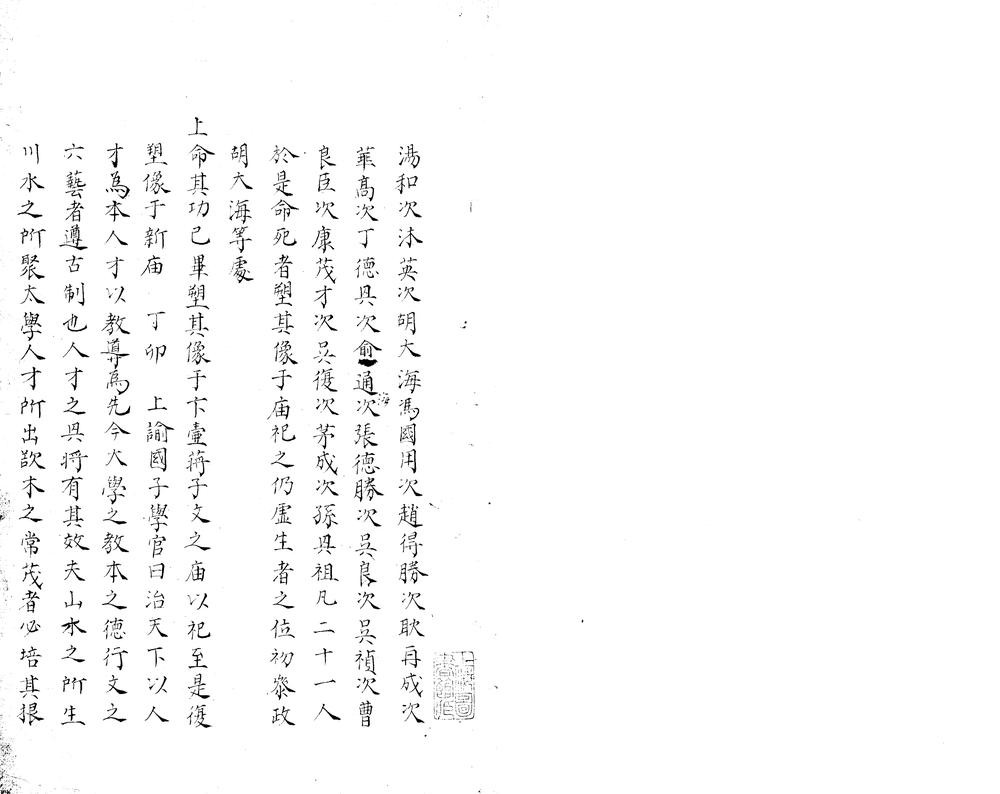 湯和次沐英次胡大海馮國用次趙得勝次耿再成次
華高次丁德興次俞通海次張德勝次吳良次吳禎次曹
良臣次康茂才次吳復次茅成次孫興祖凡二十一人
於是命死者塑其像于庙祀之仍虛生者之位初叅政
胡大海等處
上命其功已畢塑其像于卞壼蔣子文之庙以祀至是復
塑像于新庙 丁卯 上諭國子學官曰治天下以人
才為本人才以教導為先今大學之教本之德行文之
六藝者遵古制也人才之興將有其效夫山水之所生
川水之所聚太學人才所出欲木之常茂者必培其根